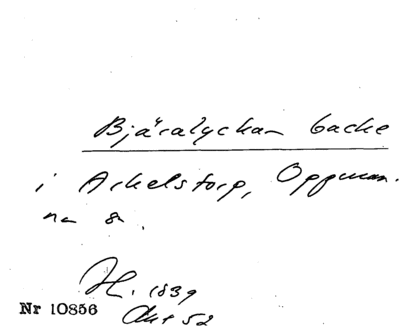 Bjäralyckan backe
i Arkelstorp, Oppman-
na sn.
H. 1839
Akt 52
Nr 10856